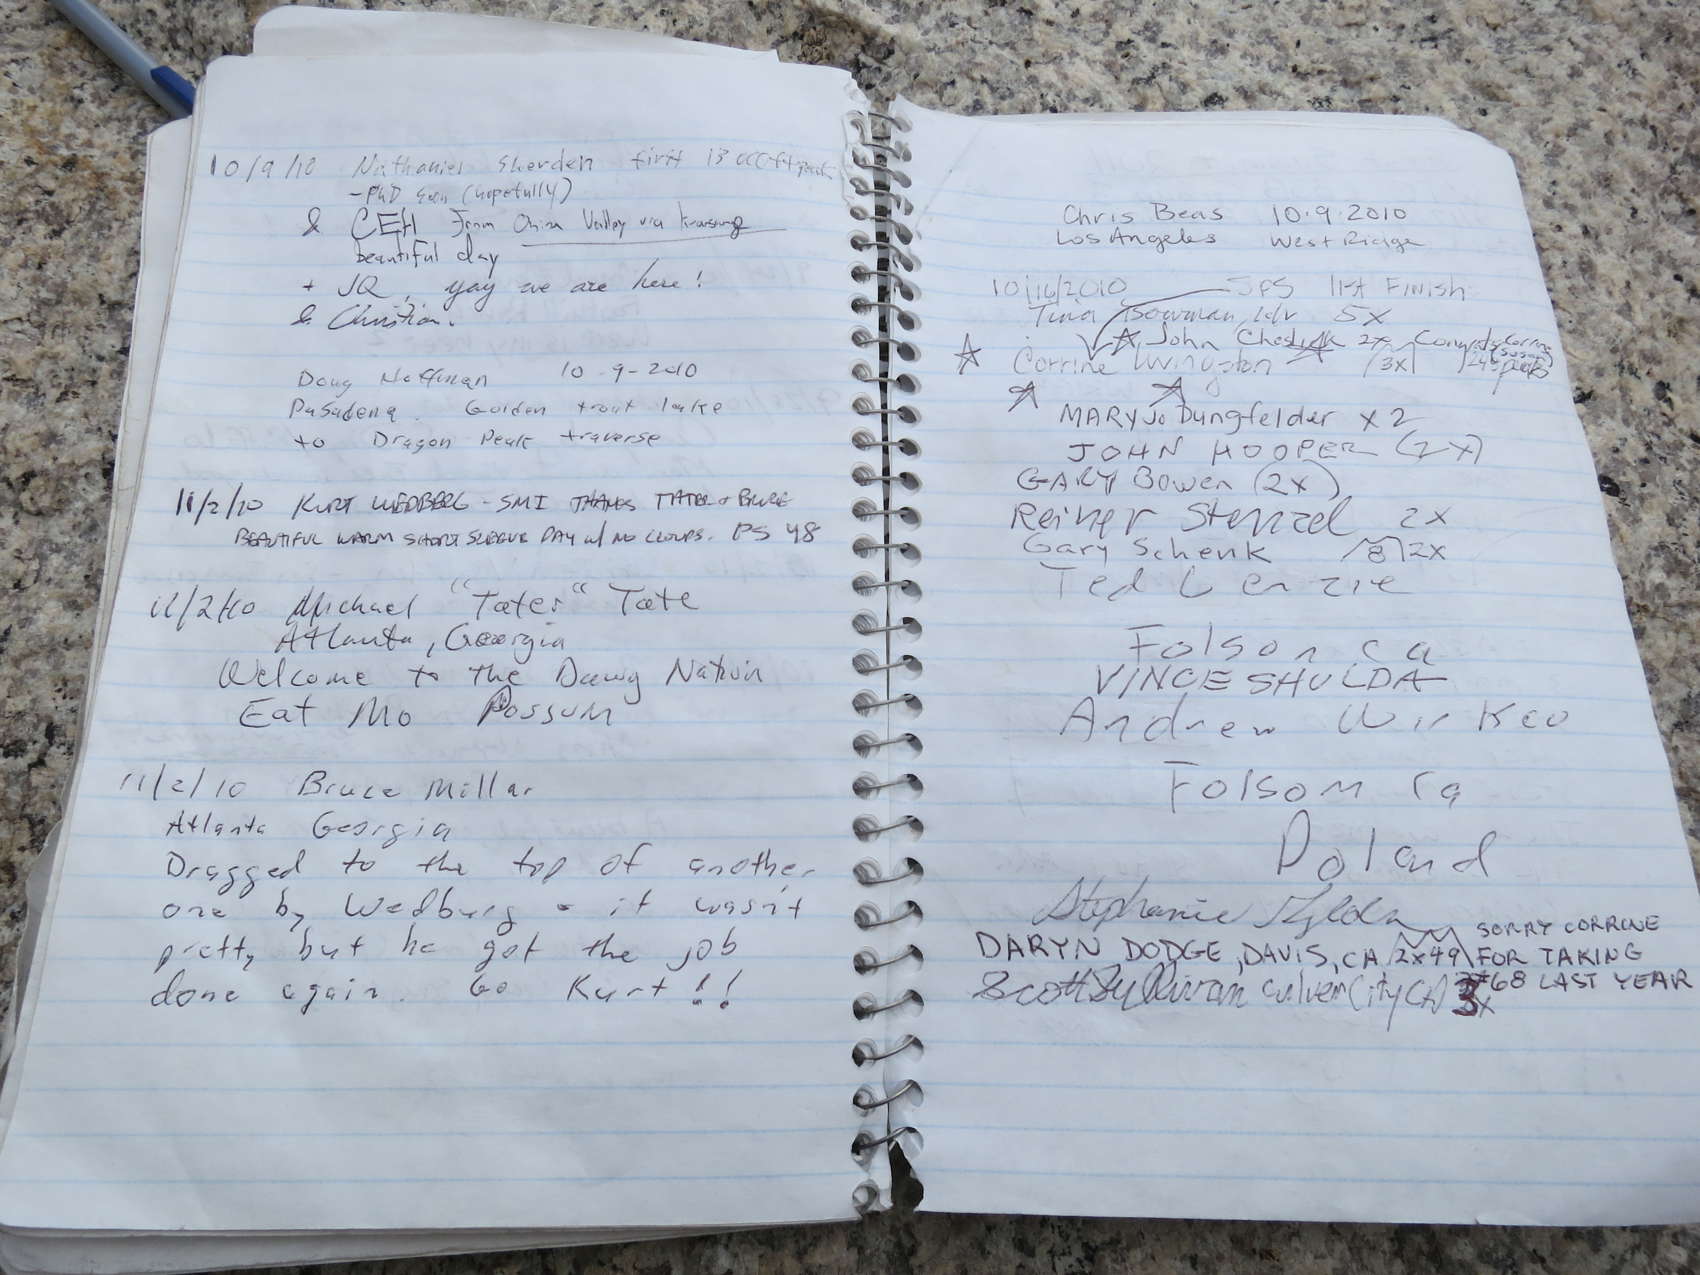 10/9/10 Nathaniel first 13 000 ft peak
- PhD soon (hopefully)
& CEH From China Valley via
beautiful day
+ JQ, yay we are here!
& Christian.
Doug 10-9-2010
Pasadena. Golden trout lake
to Dragon Peak traverse
11/2/10 KURT WEDBERG - SMI THANKS TATER + BRUCE
BEAUTIFUL WARM SHORT SLEEVE DAY w/ NO CLOUDS. PS 48
11/2/10 Michael "Tater" Tate
Atlanta, Georgia
Welcome to the Dawg Nation
Eat Mo Possum
11/2/10 Bruce Millar
Atlanta Georgia
Dragged to the top of another
one by Wedburg - it wasn't
pretty but he got the job
done again. Go Kurt!!
Chris Beas 10.9.2010
Los Angeles West Ridge
10/16/2010 SPS list Finish
Tina Bowman, ldr 5x
John 2x Congrats Corrine
Corrine Livingston 3x peaks
MARY Jo Dungfelder x 2
JOHN HOOPER (2x)
GARY Bowen (2x)
Reiner Stenzel 2x
Gary Schenk 8 2x
Ted Lenzie
Folsom ca
VINCE SHULDA
Andrew
Folsom Ca
Poland
Stephanie
DARYN DODGE, DAVIS, CA 2x49 SORRY CORRINE
FOR TAKING
#68 LAST YEAR
Scott Sullivan Culver City CA 3x